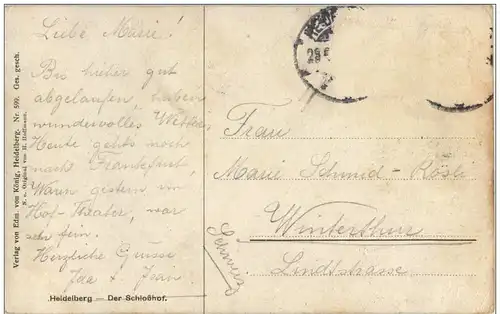 Liebe Marie!
Bis hieher gut
abgelaufen, haben
wundervolles Wetter.
Heute gehts noch
nach Frankfurt,
Waren gestern im
Hof-Theater, war
sehr fein.
Herzliche Grüsse
Heidelberg — Der Schloßhof.
Verlag von Edm. von König, Heidelberg. Nr. 599. Ges. gesch.
N. e. Original von H. Hoffmann.
Frau
Marie Schmid-Rösli
Winterthur
Lindtstrasse
Schweiz